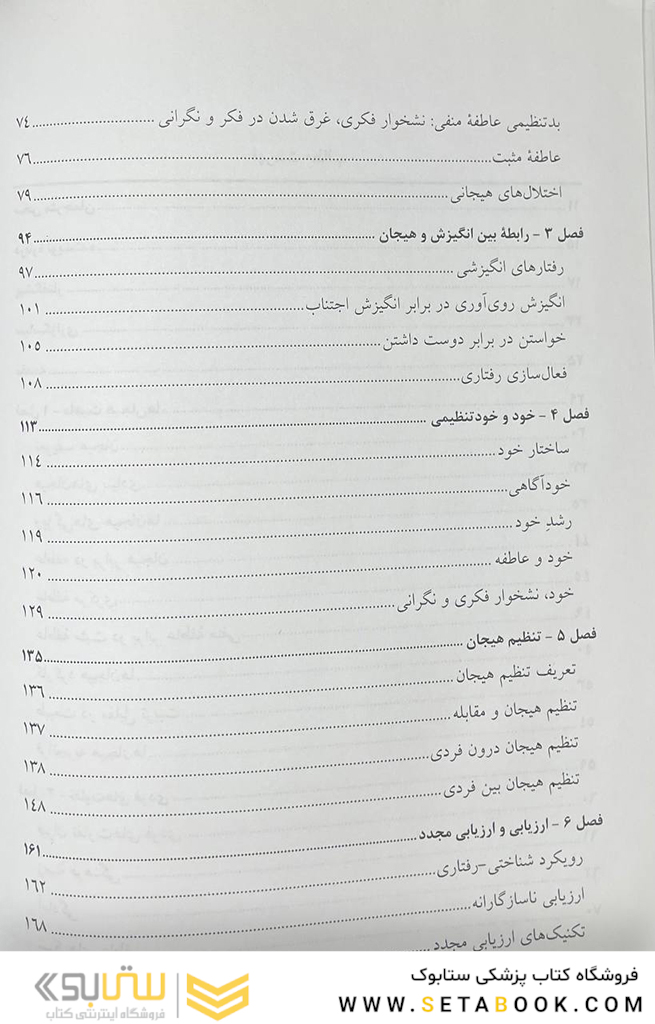 بدتنظیمی عاطفهٔ منفی: نشخوار فکری، غرق شدن در فکر و نگرانی ........................ ٧٤
عاطفهٔ مثبت ........................ ٧٦
اختلال‌های هیجانی ........................ ٧٩
فصل ۳ - رابطهٔ بین انگیزش و هیجان ........................ ۹۴
رفتارهای انگیزشی ........................ ٩٧
انگیزش روی‌آوری در برابر انگیزش اجتناب ........................ ١٠١
خواستن در برابر دوست داشتن ........................ ١٠٥
فعال‌سازی رفتاری ........................ ١٠٨
فصل ۴ - خود و خودتنظیمی ........................ ۱۱۳
ساختار خود ........................ ١١٤
خودآگاهی ........................ ١١٦
رشدِ خود ........................ ١١٩
خود و عاطفه ........................ ١٢٠
خود، نشخوار فکری و نگرانی ........................ ١٢٩
فصل ۵ - تنظیم هیجان ........................ ۱۳۵
تعریف تنظیم هیجان ........................ ١٣٦
تنظیم هیجان و مقابله ........................ ١٣٧
تنظیم هیجان درون فردی ........................ ١٣٨
تنظیم هیجان بین فردی ........................ ١٤٨
فصل ۶ - ارزیابی و ارزیابی مجدد ........................ ۱۶۱
رویکرد شناختی-رفتاری ........................ ١٦٢
ارزیابی ناسازگارانه ........................ ١٦٨
تکنیک‌های ارزیابی مجدد ........................
فروشگاه کتاب پزشکی ستابوک
WWW.SETABOOK.COM
ستابوک
فروشگاه اینترنتی کتاب